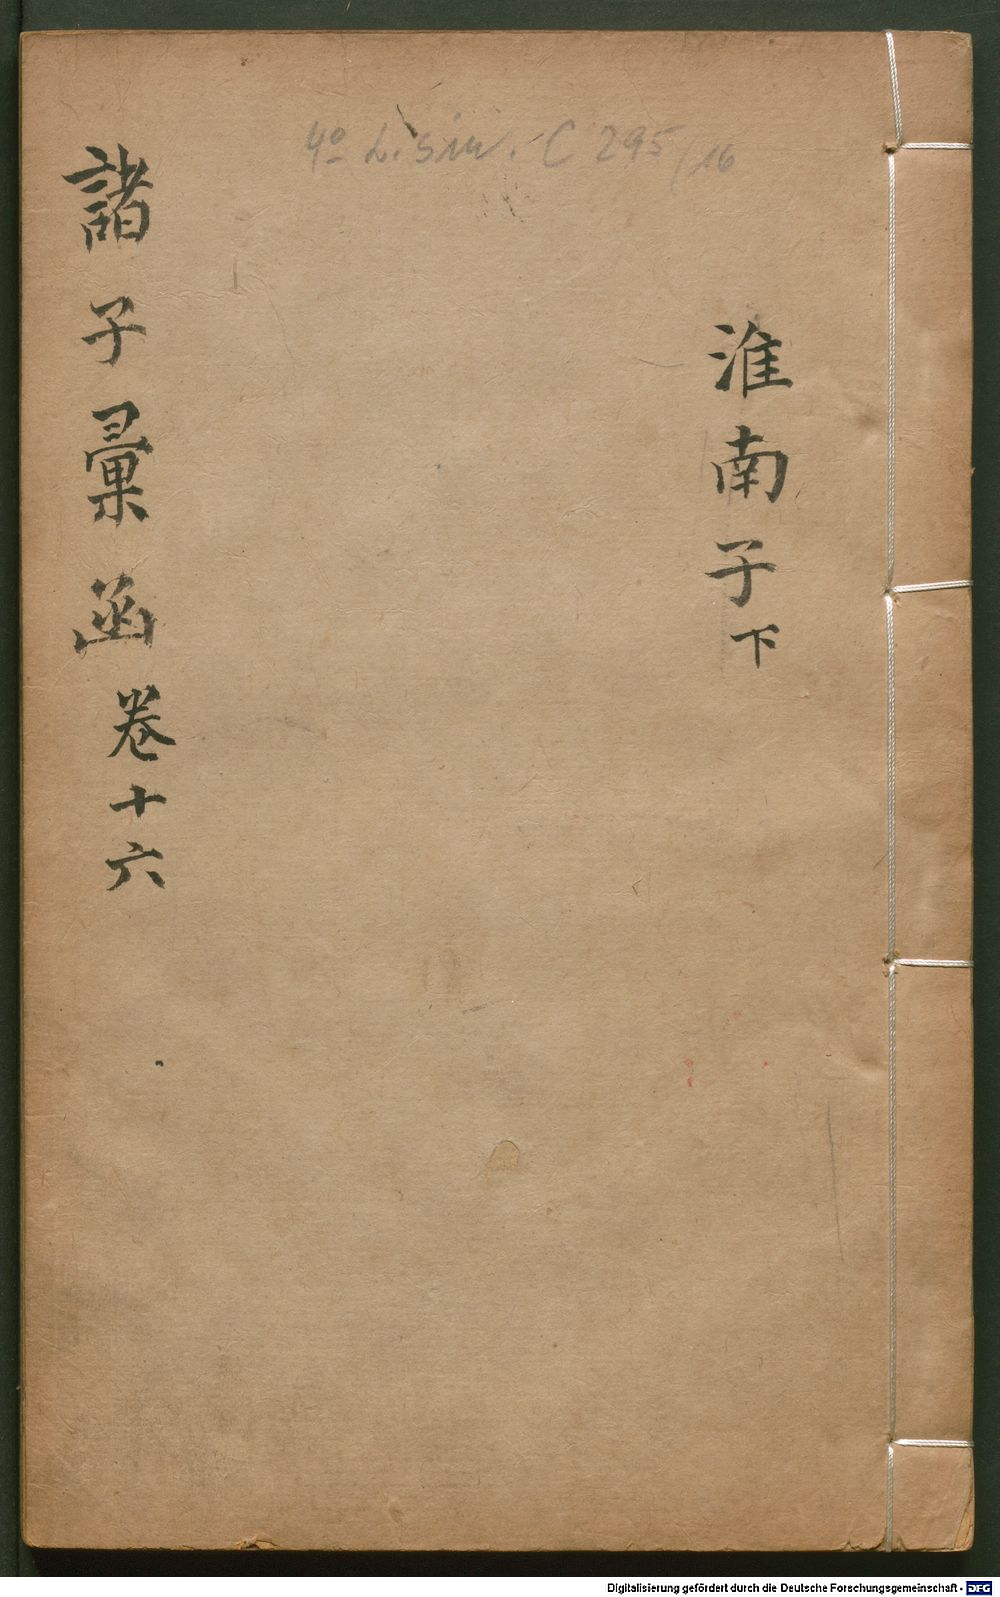 4º L. sin. C 295/16
淮南子下
諸子彙函卷十六
Digitalisierung gefördert durch die Deutsche Forschungsgemeinschaft - DFG